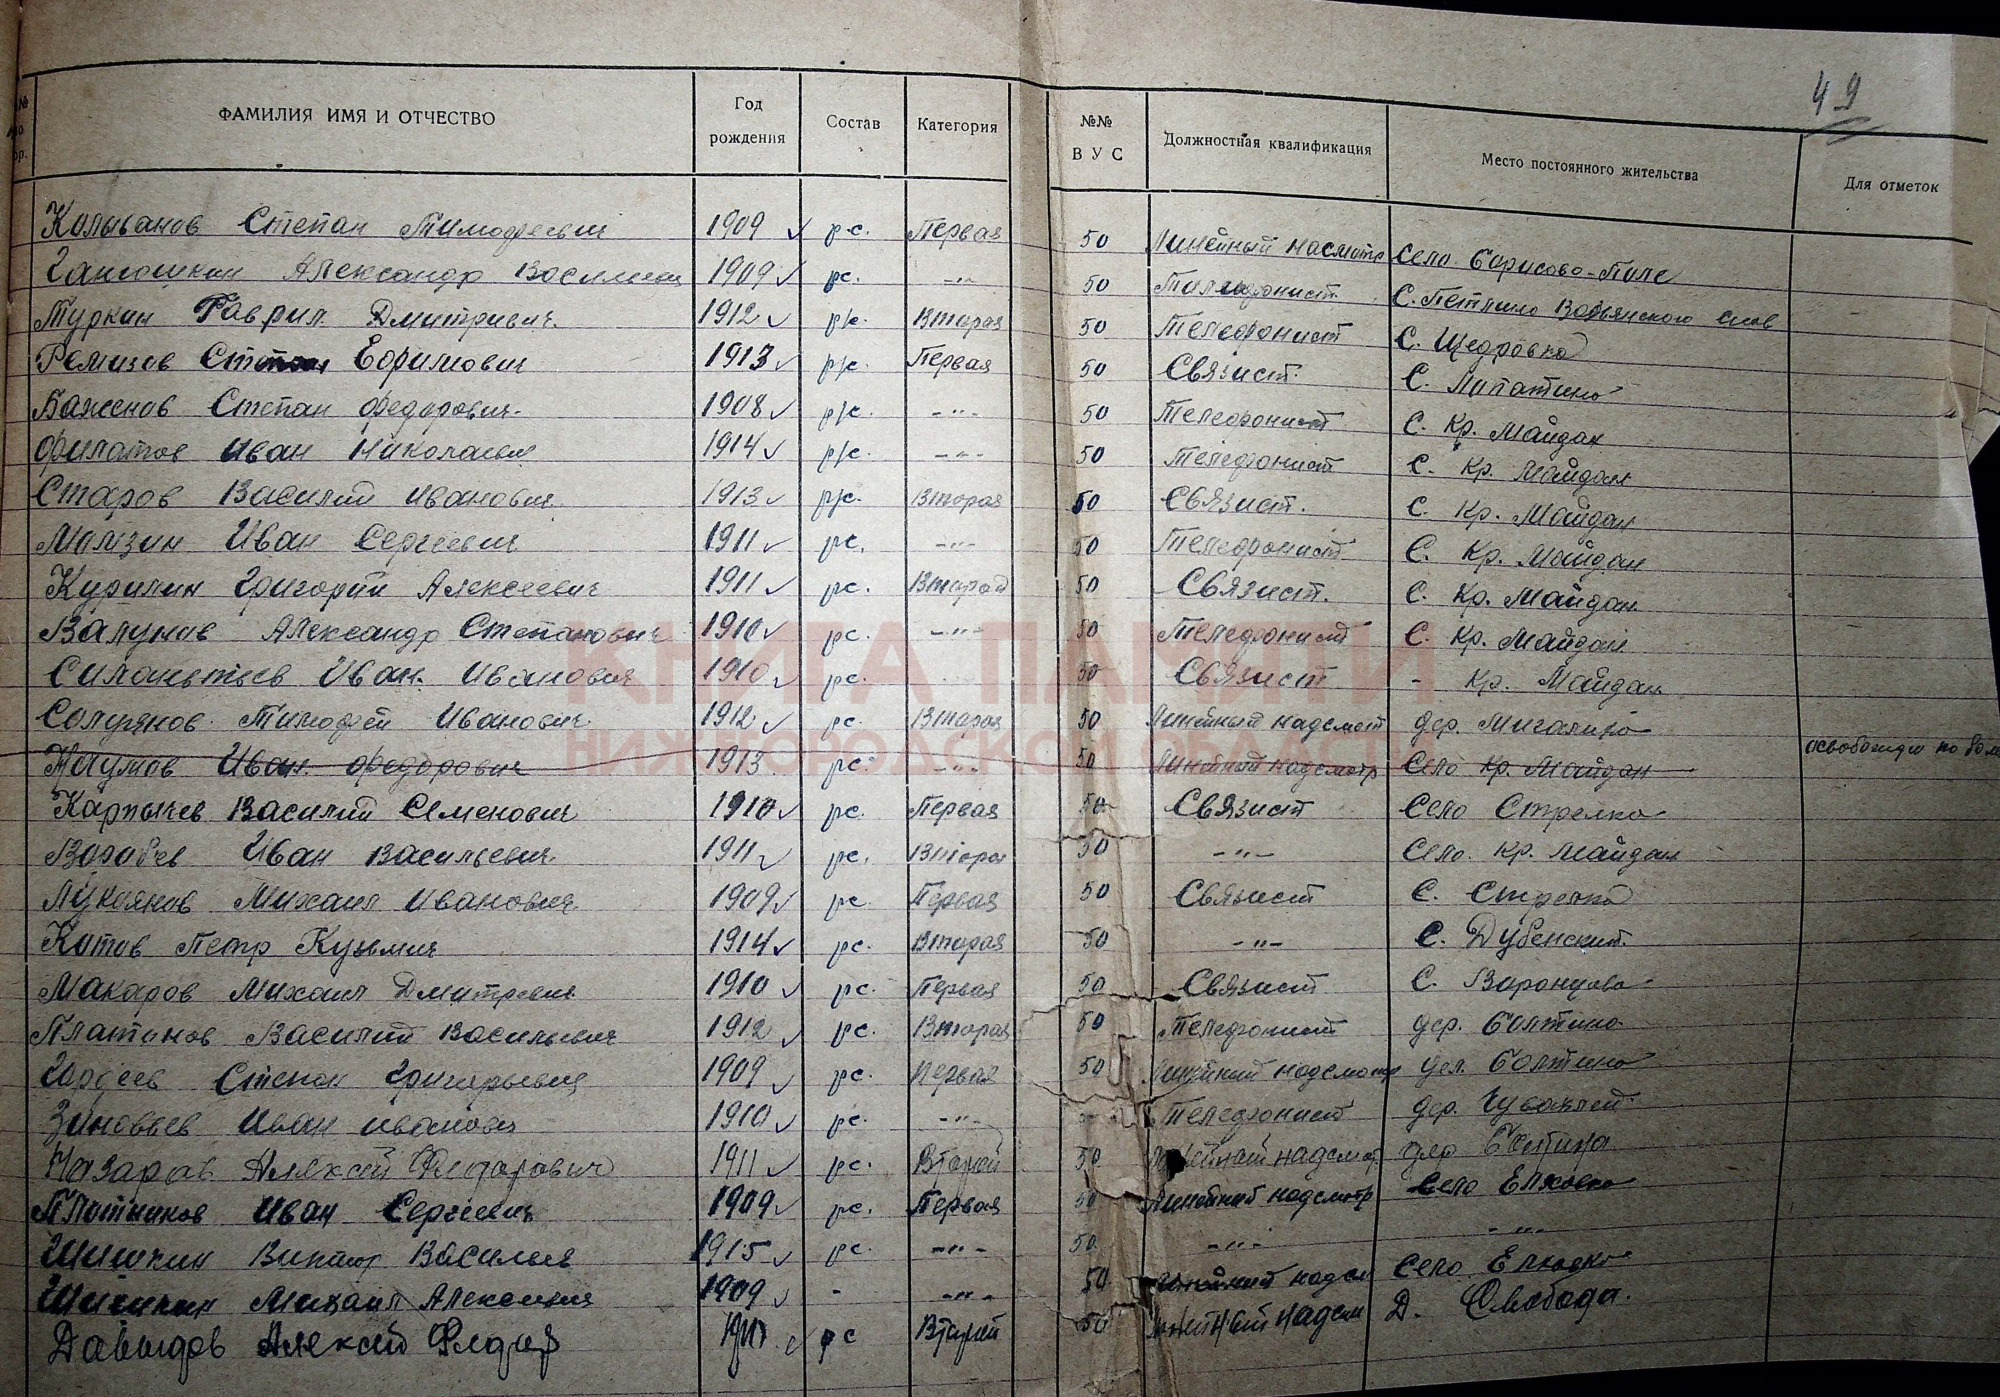 49
№ по пор. ФАМИЛИЯ ИМЯ И ОТЧЕСТВО Год рождения Состав Категория №№ ВУС Должностная квалификация Место постоянного жительства Для отметок
Колыванов Степан Тимофеевич 1909 р.с. Первая 50 Линейный насмотр Село Борисово-Поле
Александр Васильевич 1909 рс. -"- 50 Телефонист С. Петлино
Туркин Гаврил Дмитриевич 1912 р/с. Вторая 50 Телефонист С. Щедровка
Ремизов Степан Ефимович 1913 р/с. Первая 50 Связист. С. Лопатино
Баженов Степан Федорович 1908 р/с. -"- 50 Телефонист С. Кр. Майдан
Филатов Иван Николаевич 1914 р/с. -"- 50 Телефонист С. Кр. Майдан
Старов Василий Иванович 1913 р/с. Вторая 50 Связист. С. Кр. Майдан
Мамзин Иван Сергеевич 1911 рс. -"- 50 Телефонист С. Кр. Майдан
Курилин Григорий Алексеевич 1911 рс. Второй 50 Связист. С. Кр. Майдан
Валунов Александр Степанович 1910 рс. -"- 50 Телефонист С. Кр. Майдан
Силантьев Иван Иванович 1910 рс. 50 Связист - Кр. Майдан
КНИГА ПАМЯТИ
Солдянов Тимофей Иванович 1912 рс. Вторая 50 Линейный надсмот дер. Мигалиха
НИЖЕГОРОДСКОЙ ОБЛАСТИ
Наумов Иван Федорович 1913 рс. -"- 50 Линейный надсмотр Село Кр. Майдан по
Карпычев Василий Семенович 1910 рс. Первая 50 Связист Село Стрелка
Воробьев Иван Васильевич 1911 рс. Втора 50 -"- Село Кр. Майдан
Лукоянов Михаил Иванович 1909 рс. Первая 50 Связист С. Стрелка
Котов Петр Кузьмич 1914 рс. Вторая 50 -"- С. Дубенский
Макаров Михаил Дмитревич 1910 рс. Первая 50 Связист С. Воронцово
Платонов Василий Васильевич 1912 рс. Вторая 50 Телефонист дер. Болтино
Гордеев Степан Григорьевич 1909 рс. Первая 50 Линейный надсмотр Болтино
Зиновьев Иван Иванович 1910 рс. -"- Телефонист дер.
Назаров Алексей Федорович 1911 рс. Второй 50 Линейный надсмот. дер
Плотников Иван Сергеевич 1909 рс. Первая 50 Линейный надсмотр Село Елховка
Шишкин Виктор Василье 1915 рс. -"- 50 -"- -"-
Шишкин Михаил Алексеевич 1909 - -"- 50 надсм Село Елховка
Давыдов Алексей Федор рс Второй 50 Линейный надсм Д. Слобода.